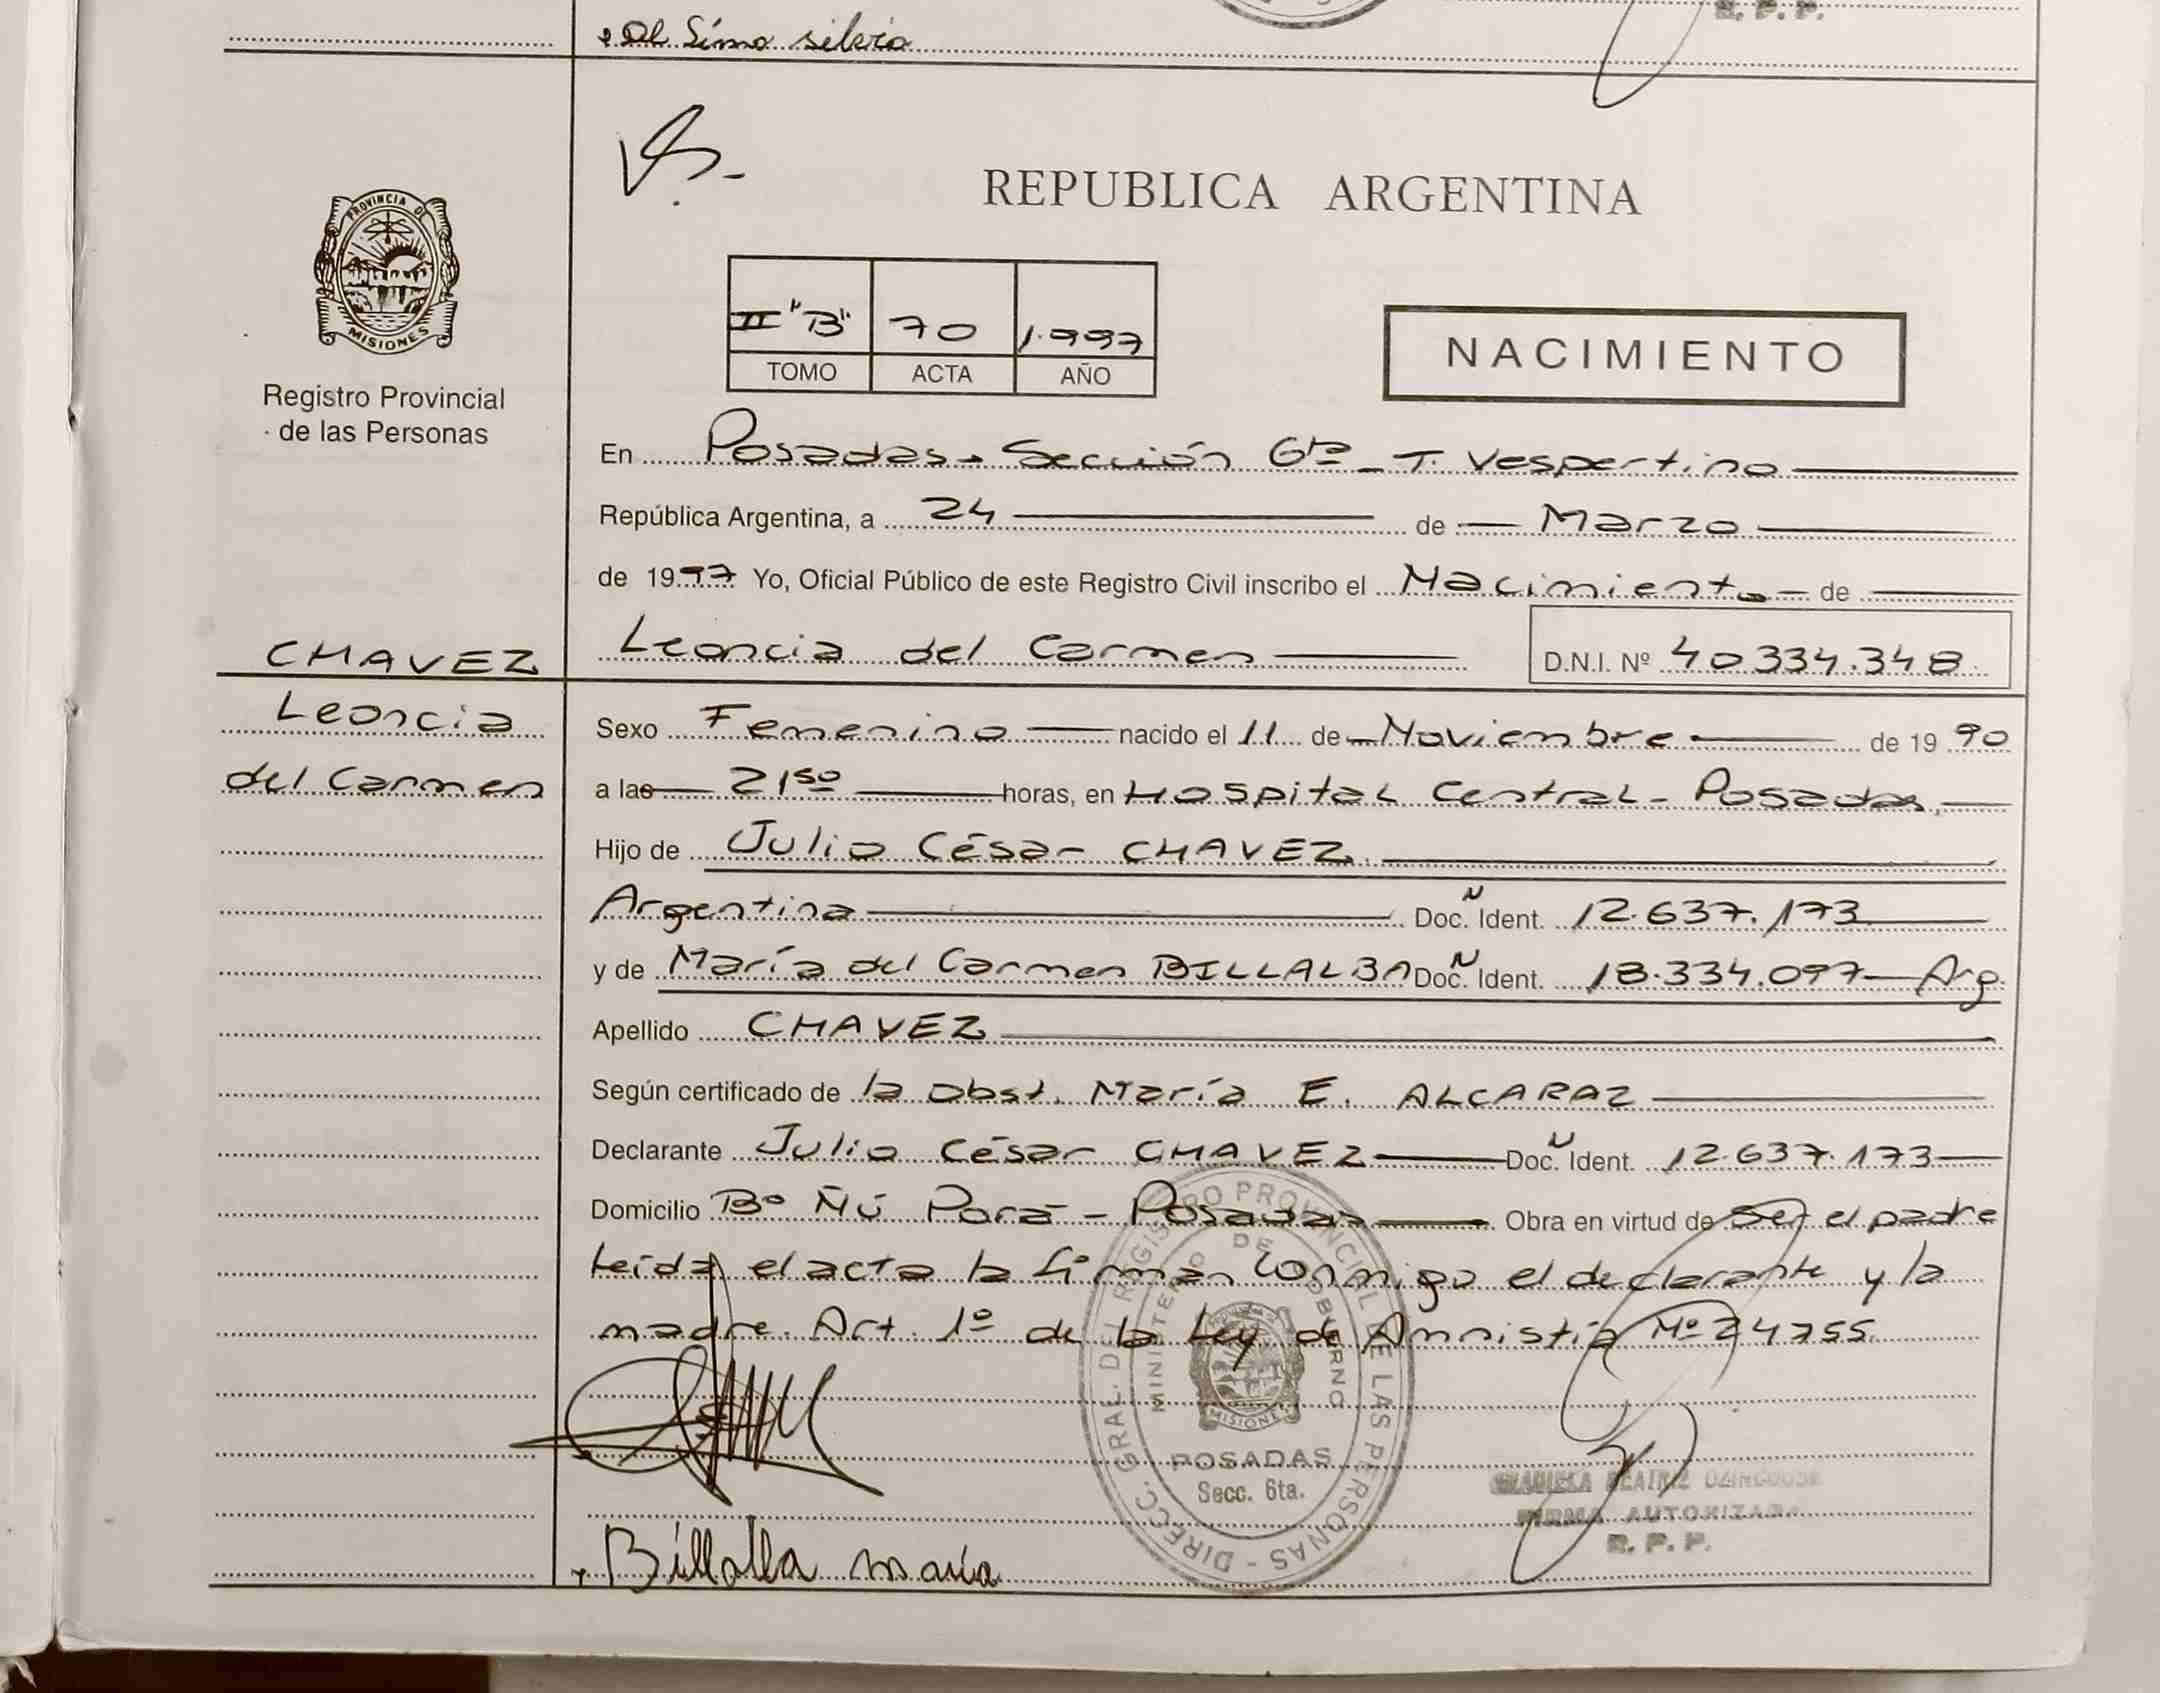 Simo silvia
R. P. P.
REPUBLICA ARGENTINA
PROVINCIA DE
MISIONES
Registro Provincial
de las Personas
II "B" 70 1.997
TOMO ACTA AÑO
NACIMIENTO
En Posadas - Sección 6ta - T. Vespertino
República Argentina, a 24 de Marzo
de 1997 Yo, Oficial Público de este Registro Civil inscribo el Nacimiento de
CHAVEZ
Leoncia del Carmen D.N.I. Nº 40.334.348
Leoncia
del Carmen
Sexo Femenino nacido el 11 de Noviembre de 19 90
a las 21⁵⁰ horas, en Hospital Central - Posadas,
Hijo de Julio César CHAVEZ
Argentina Doc. Ñ Ident. 12.637.173
y de María del Carmen BILLALBA Doc. Ñ Ident. 18.334.097 - Arg.
Apellido CHAVEZ
Según certificado de la Obst. María E. ALCARAZ
Declarante Julio César CHAVEZ Doc. Ñ Ident. 12.637.173
Domicilio Bº Ñú Porá - Posadas Obra en virtud de Ser el padre
Leída el acta la firman conmigo el declarante y la
madre. Art. 1º de la Ley de Amnistía Nº 24755
DIRECC. GRAL. DEL REGISTRO PROVINCIAL DE LAS PERSONAS -
MINISTERIO DE GOBIERNO
MISIONES
POSADAS
Secc. 6ta.
BEATRIZ
FIRMA AUTORIZADA
R. P. P.
Billalba maria